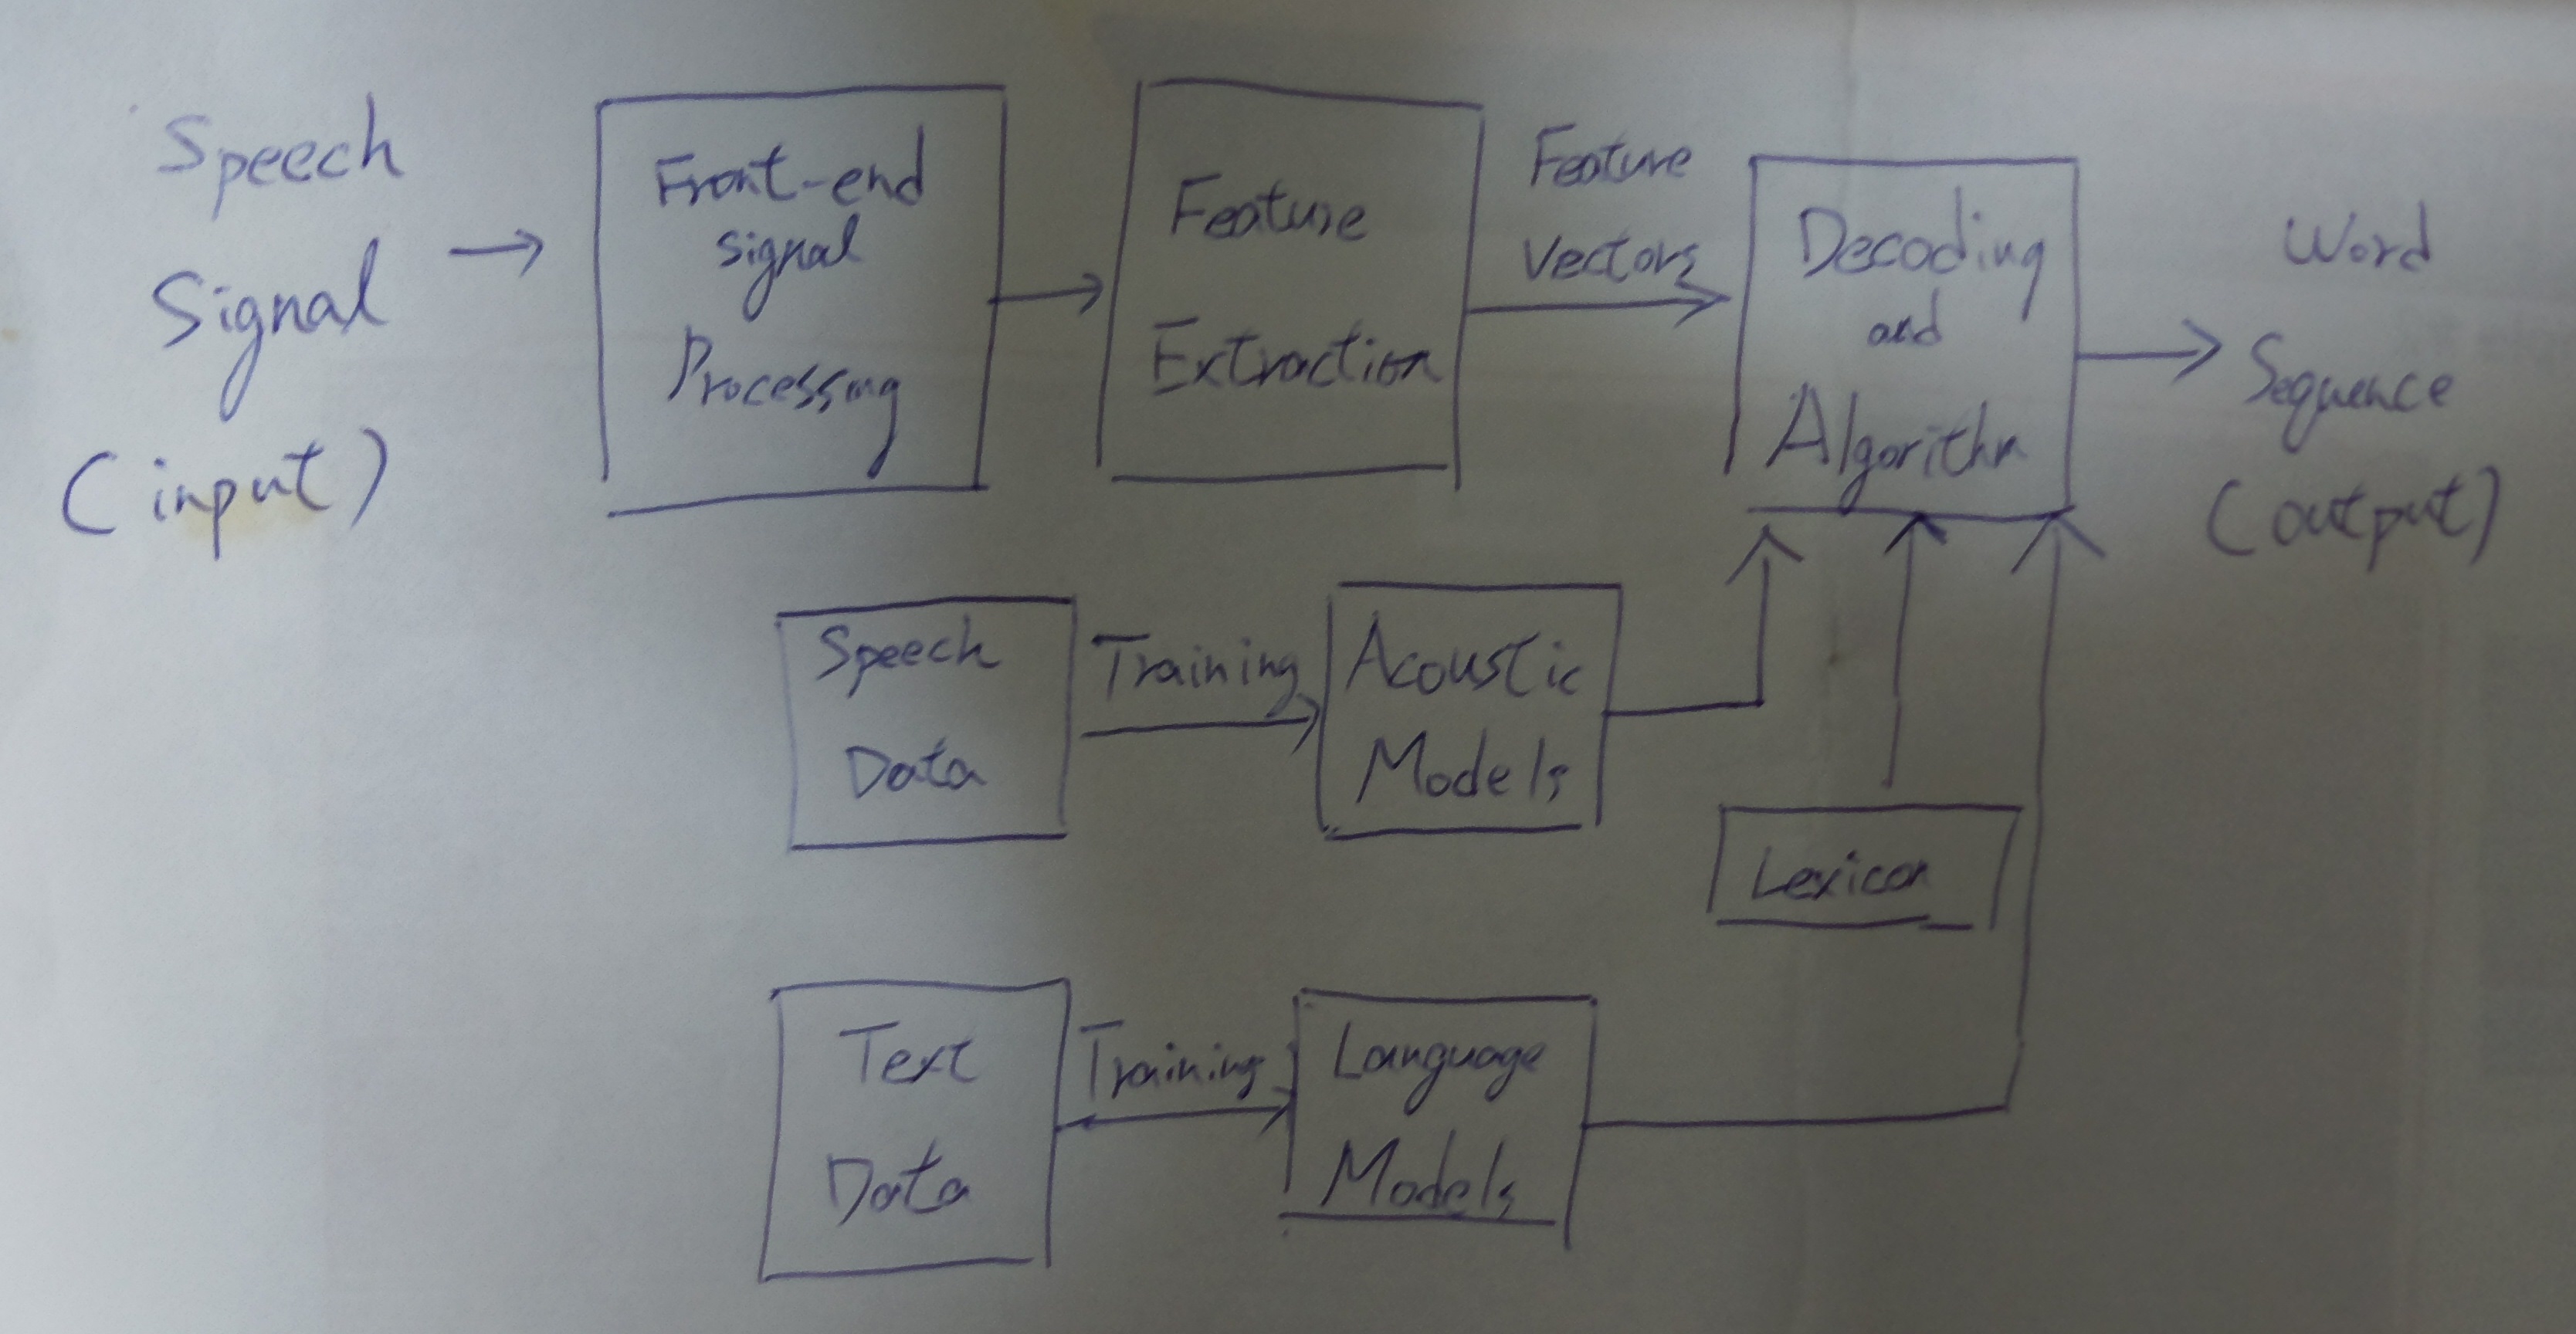 Speech
Signal
(input)
Front-end
signal
Processing
Feature
Extraction
Feature
Vectors
Decoding
and
Algorithm
Word
Sequence
(output)
Speech
Data
Training
Acoustic
Models
Lexicon
Text
Data
Training
Language
Models